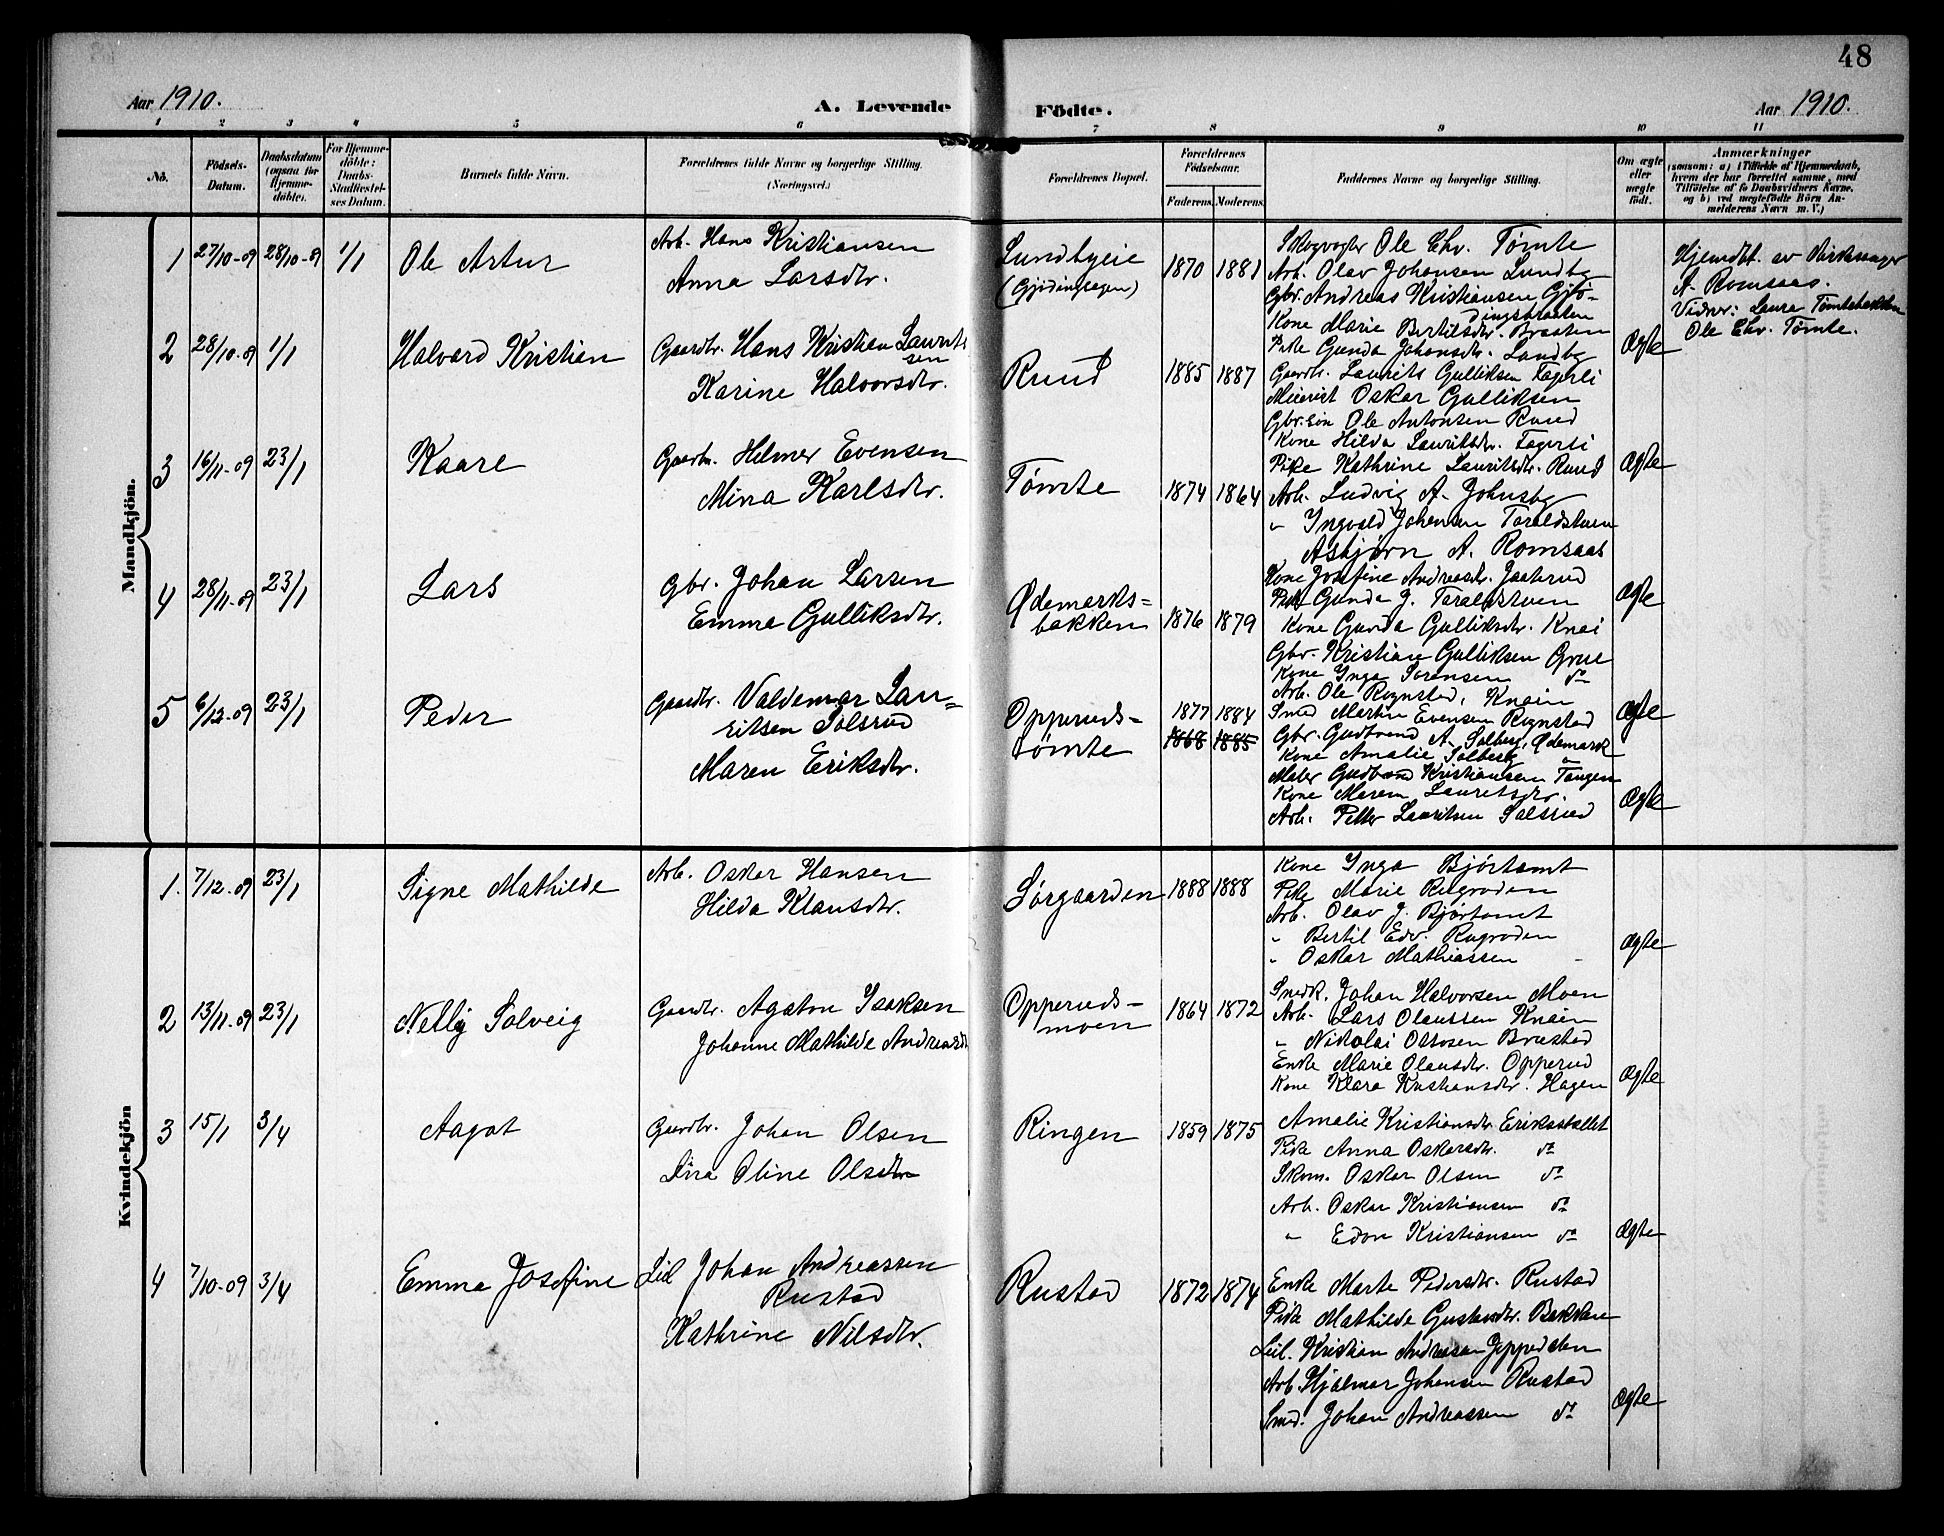 48
Aar 1910.
A. Levende Födte.
Aar 1910.
1 2 3 4 5 6 7 8 9 10 11
No.
Födsels-Datum.
Daabsdatum (ogsaa for Hjemme-döbte).
For Hjemme-döbte: Daabs-Stadfæstel-ses Datum.
Barnets fulde Navn.
Forældrenes fulde Navne og borgerlige Stilling. (Næringsvei.)
Forældrenes Bopæl.
Forældrenes Födselsaar.
Faderens. Moderens.
Faddernes Navne og borgerlige Stilling.
Om ægte eller uægte födt.
Anmærkninger
(saasom: a) i Tilfælde af Hjemmedaab, hvem der har forrettet samme, med Tilföielse af to Daabsvidners Navne, og b) ved uægtefödte Börn An-melderens Navn m. V.)
Mandkjön.
1 27/10-09 28/10-09 1/1 Ole Artur
Arb. Hans Kristiansen
Anna Larsdtr.
Lundbyeie
(Gjødingsegen)
1870 1881
Skogvogter Ole Chr. Tømte
Arb. Olav Johansen Lundby
Gbr. Andreas Kristiansen Gjø-
dingsbraaten
Kone Marie Bertilsdtr. Braaten
Pike Gunda Johansdtr. Lundby
Ægte
Hjemdbt. av
A. Romsaas.
Vidner: Laura Tømtebakken
Ole Chr. Tømte.
2 28/10-09 1/1 Halvard Kristian
Gaardbr. Hans Kristian Laurit
sen
Karine Halvorsdtr.
Ruud
1885 1887
Gaardbr. Laurits Gulliksen Fagerli
Oskar Gulliksen
Gbr. søn Ole Antonsen Ruud
Kone Hilda Lauritsdtr. Fagerli
Pike Kathrine Lauritsdtr. Ruud
Ægte
3 16/11-09 23/1 Kaare
Gaardbr. Helmer Evensen
Mina Karlsdtr.
Tømte
1874 1864
Arb. Ludvig A. Johnsby
" Ingvald Johansen Taraldstuen
Asbjørn A. Romsaas
Kone Josefine Andreasdtr. Jaaterud
Pike Gunda J. Taraldstuen
Ægte
4 28/11-09 23/1 Lars
Gbr. Johan Larsen
Emma Gulliksdtr.
Ødemarks=
bakken
1876 1879
Kone Gunda Gulliksdtr. Knai
Gbr. Kristian Gulliksen Grue
Kone Inga Sørensen do
Arb. Ole Rognstad, Knain
Smed Martin Evensen Rognstad
Ægte
5 6/12-09 23/1 Peder
Gaardbr. Valdemar Lau=
ritsen Solsrud
Maren Eriksdtr.
Opperuds-
tømte
1877 1884
1868 1885
Gbr. Gudbrand A. Solberg, Ødemark
Kone Amalie Solberg "
Maler Gudbrand Kristiansen Tangen
Kone Maren Lauritsdtr.
Arb. Petter Lauritsen Solsrud
Ægte
Kvindekjön
1. 7/12-09 23/1 Signe Mathilde
Arb. Oskar Hansen
Hilda Klausdtr.
Sørgaarden
1888 1888
Kone Inga Bjørtomt
Pike Marie Rugroden
Arb. Olav J. Bjørtomt
" Bertil Edv. Rugroden
" Oskar Mathiassen
Ægte
2 13/11-09 23/1 Nelly Solveig
Gaardbr. Agaton Isaksen
Johanne Mathilde Andreasdt
Opperuds-
moen
1864 1872
Snedk. Johan Halvorsen Moen
Arb. Lars Olaussen Knain
" Nikolai Ottosen Brustad
Enke Marie Olausdtr. Opperud
Kone Klara Kristiansdtr. Hagen
Ægte
3 15/1 3/4 Aagot
Gaardbr. Johan Olsen
Lina Oline Olsdtr
Ringen
1859 1875
Amalie Kristiansdtr. Eriksstallet
Pike Anna Oskarsdtr. do
Skom. Oskar Olsen do
Arb. Oskar Kristiansen do
" Edon Kristiansen do
Ægte
4 7/10-09 3/4 Emma Josefine
Leil Johan Andreassen
Rustad
Kathrine Nilsdtr.
Rustad
1872 1874
Enke Marte Pedersdtr. Rustad
Pike Mathilde Gustavsdtr. Bakken
Leil. Kristian Andreasen
Arb Hjalmar Johansen Rustad
Smd. Johan Andreassen do
Ægte